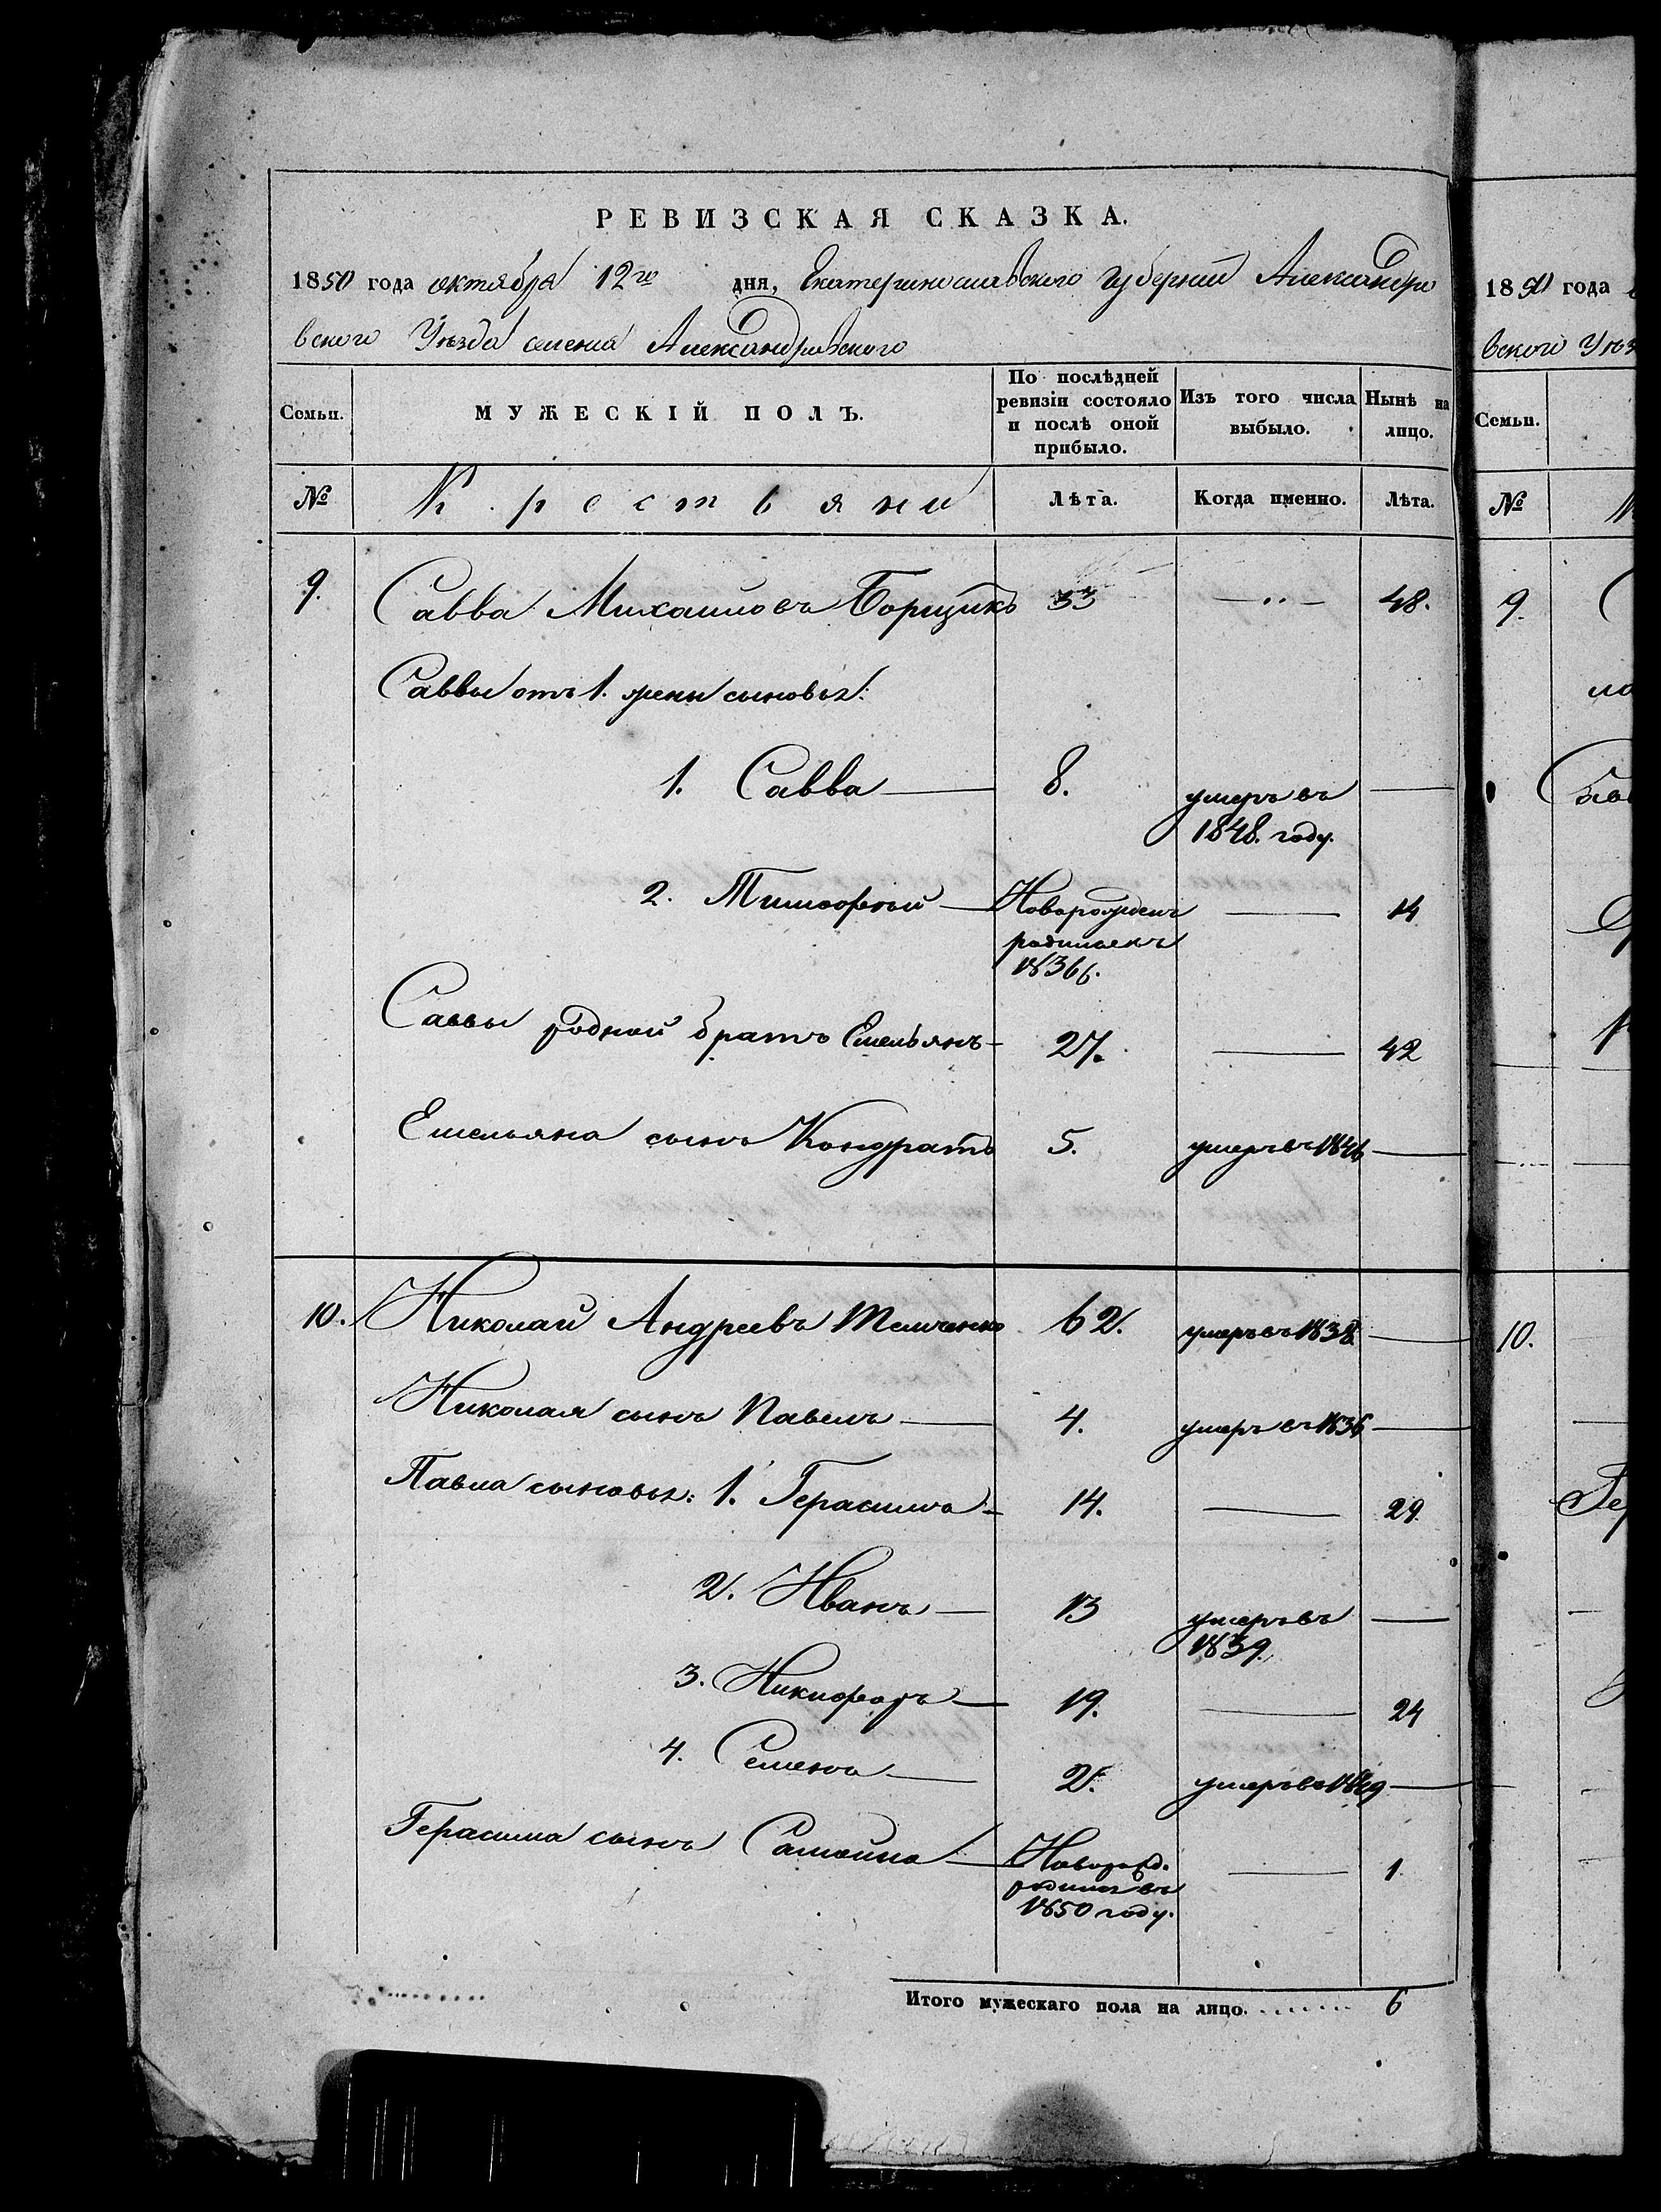 РЕВИЗСКАЯ СКАЗКА.
1850 года октября 12го дня, Екатеринославского Губернии Александро
вского Уезда селения Александровского
Семьи. МУЖЕСКІЙ ПОЛЪ. По послѣдней ревизіи состояло и послѣ оной прибыло. Изъ того числа выбыло. Нынѣ на лицо.
№ Крестьяни Лѣта. Когда именно. Лѣта.
9. Савва Михаиловъ Борщикъ 33 48.
Саввы отъ 1. жены сыновья:
1. Савва 8. умеръ въ
1848. году.
2. Тимофей Новорожден 14
родился въ
1836 г.
Саввы родной братъ Емельянъ 27. 42
Емельяна сынъ Кондратъ 5. умеръ въ 1846
10. Николай Андреевъ Темченко 62. умеръ въ 1838.
Николая сынъ Павелъ 4. умеръ въ 1836
Павла сыновья: 1. Герасимъ 14. 29
2. Иванъ 13 умеръ въ
1839.
3. Никифоръ 19. 24
4. Семенъ 2. умеръ въ 1849
Герасима сынъ Самойло Новорожд. 1.
родился въ
1850 году.
Итого мужескаго пола на лицо. 6
1850 года
вского Уез
Семьи.
№
9.
10.